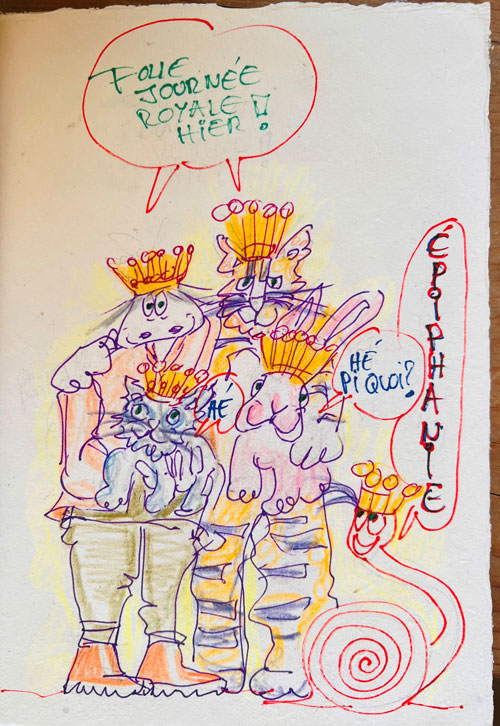 FOLLE
JOURNÉE
ROYALE
HIER !
HÉ
HÉ
PI QUOI?
ÉPIPHANIE